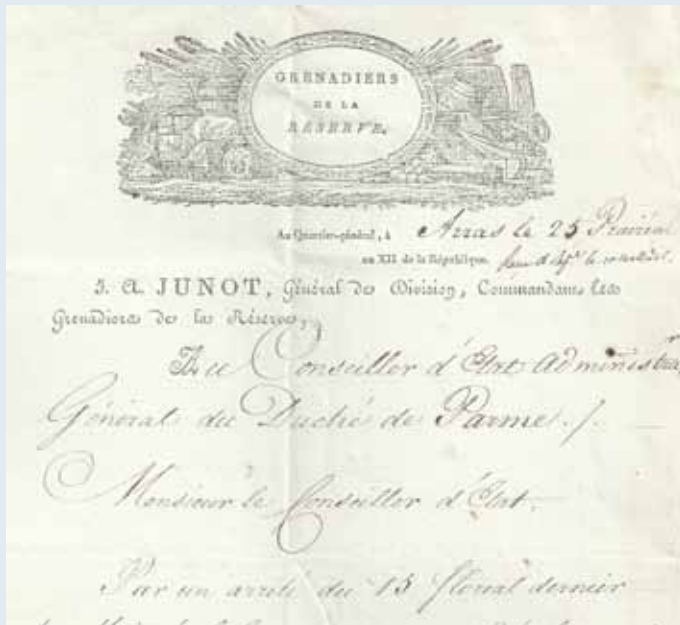 GRENADIERS
DE LA
RÉSERVE.
Au Quartier-général, à Arras le 25 Prairial
an XII de la République.
J. A. JUNOT, Général de Division, Commandant les
Grenadiers de la Réserve,
Au Conseiller d'Etat Administrateur
Général du Duché de Parme ./.
Monsieur le Conseiller d'Etat.
Par un arrêté du 13 floréal dernier